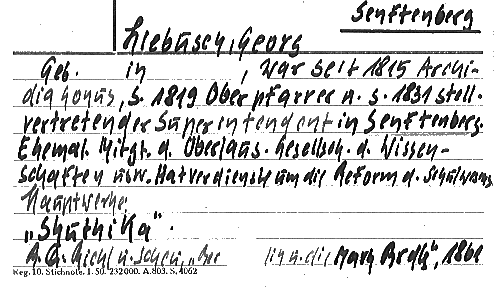 Senftenberg
Liebusch, Georg
Geb. in , war seit 1815 Archi-
diakonus, s. 1819 Oberpfarrer u. s. 1831 stell-
vertretender Superintendent in Senftenberg.
Ehemal. Mitgl. d. Oberlaus. Gesellsch. d. Wissen-
schaften usw. Hat verdienste um die Reform d. Schulwesens
Hauptwerke
„Skythika".
A.Q. Riehl u. Scheu, „Ber lin u. die Mark Brdbg", 1861
Reg. 10. Stichnote. I. 50. 232000. A.803. S. 4062